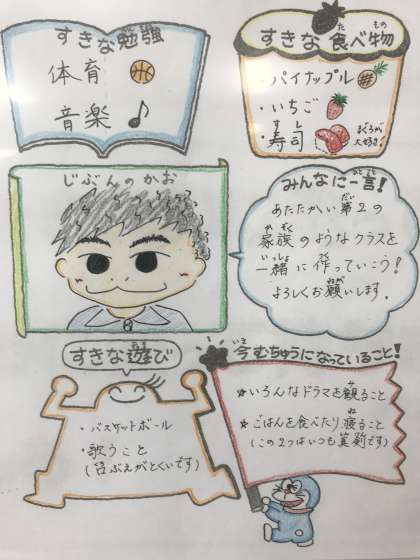 すきな勉強
体育
音楽
すきな食べ物
・パイナップル
・いちご
・寿司
まぐろが
大好き!
じぶんのかお
みんなに一言!
あたたかい第2の
家族のようなクラスを
一緒に作っていこう!
よろしくお願いします.
すきな遊び
・バスケットボール
・歌うこと
(口ぶえがとくいです)
今むちゅうになっていること!
☆いろんなドラマを観ること
☆ごはんを食べたり、寝ること
(この2つはいつも真剣です)